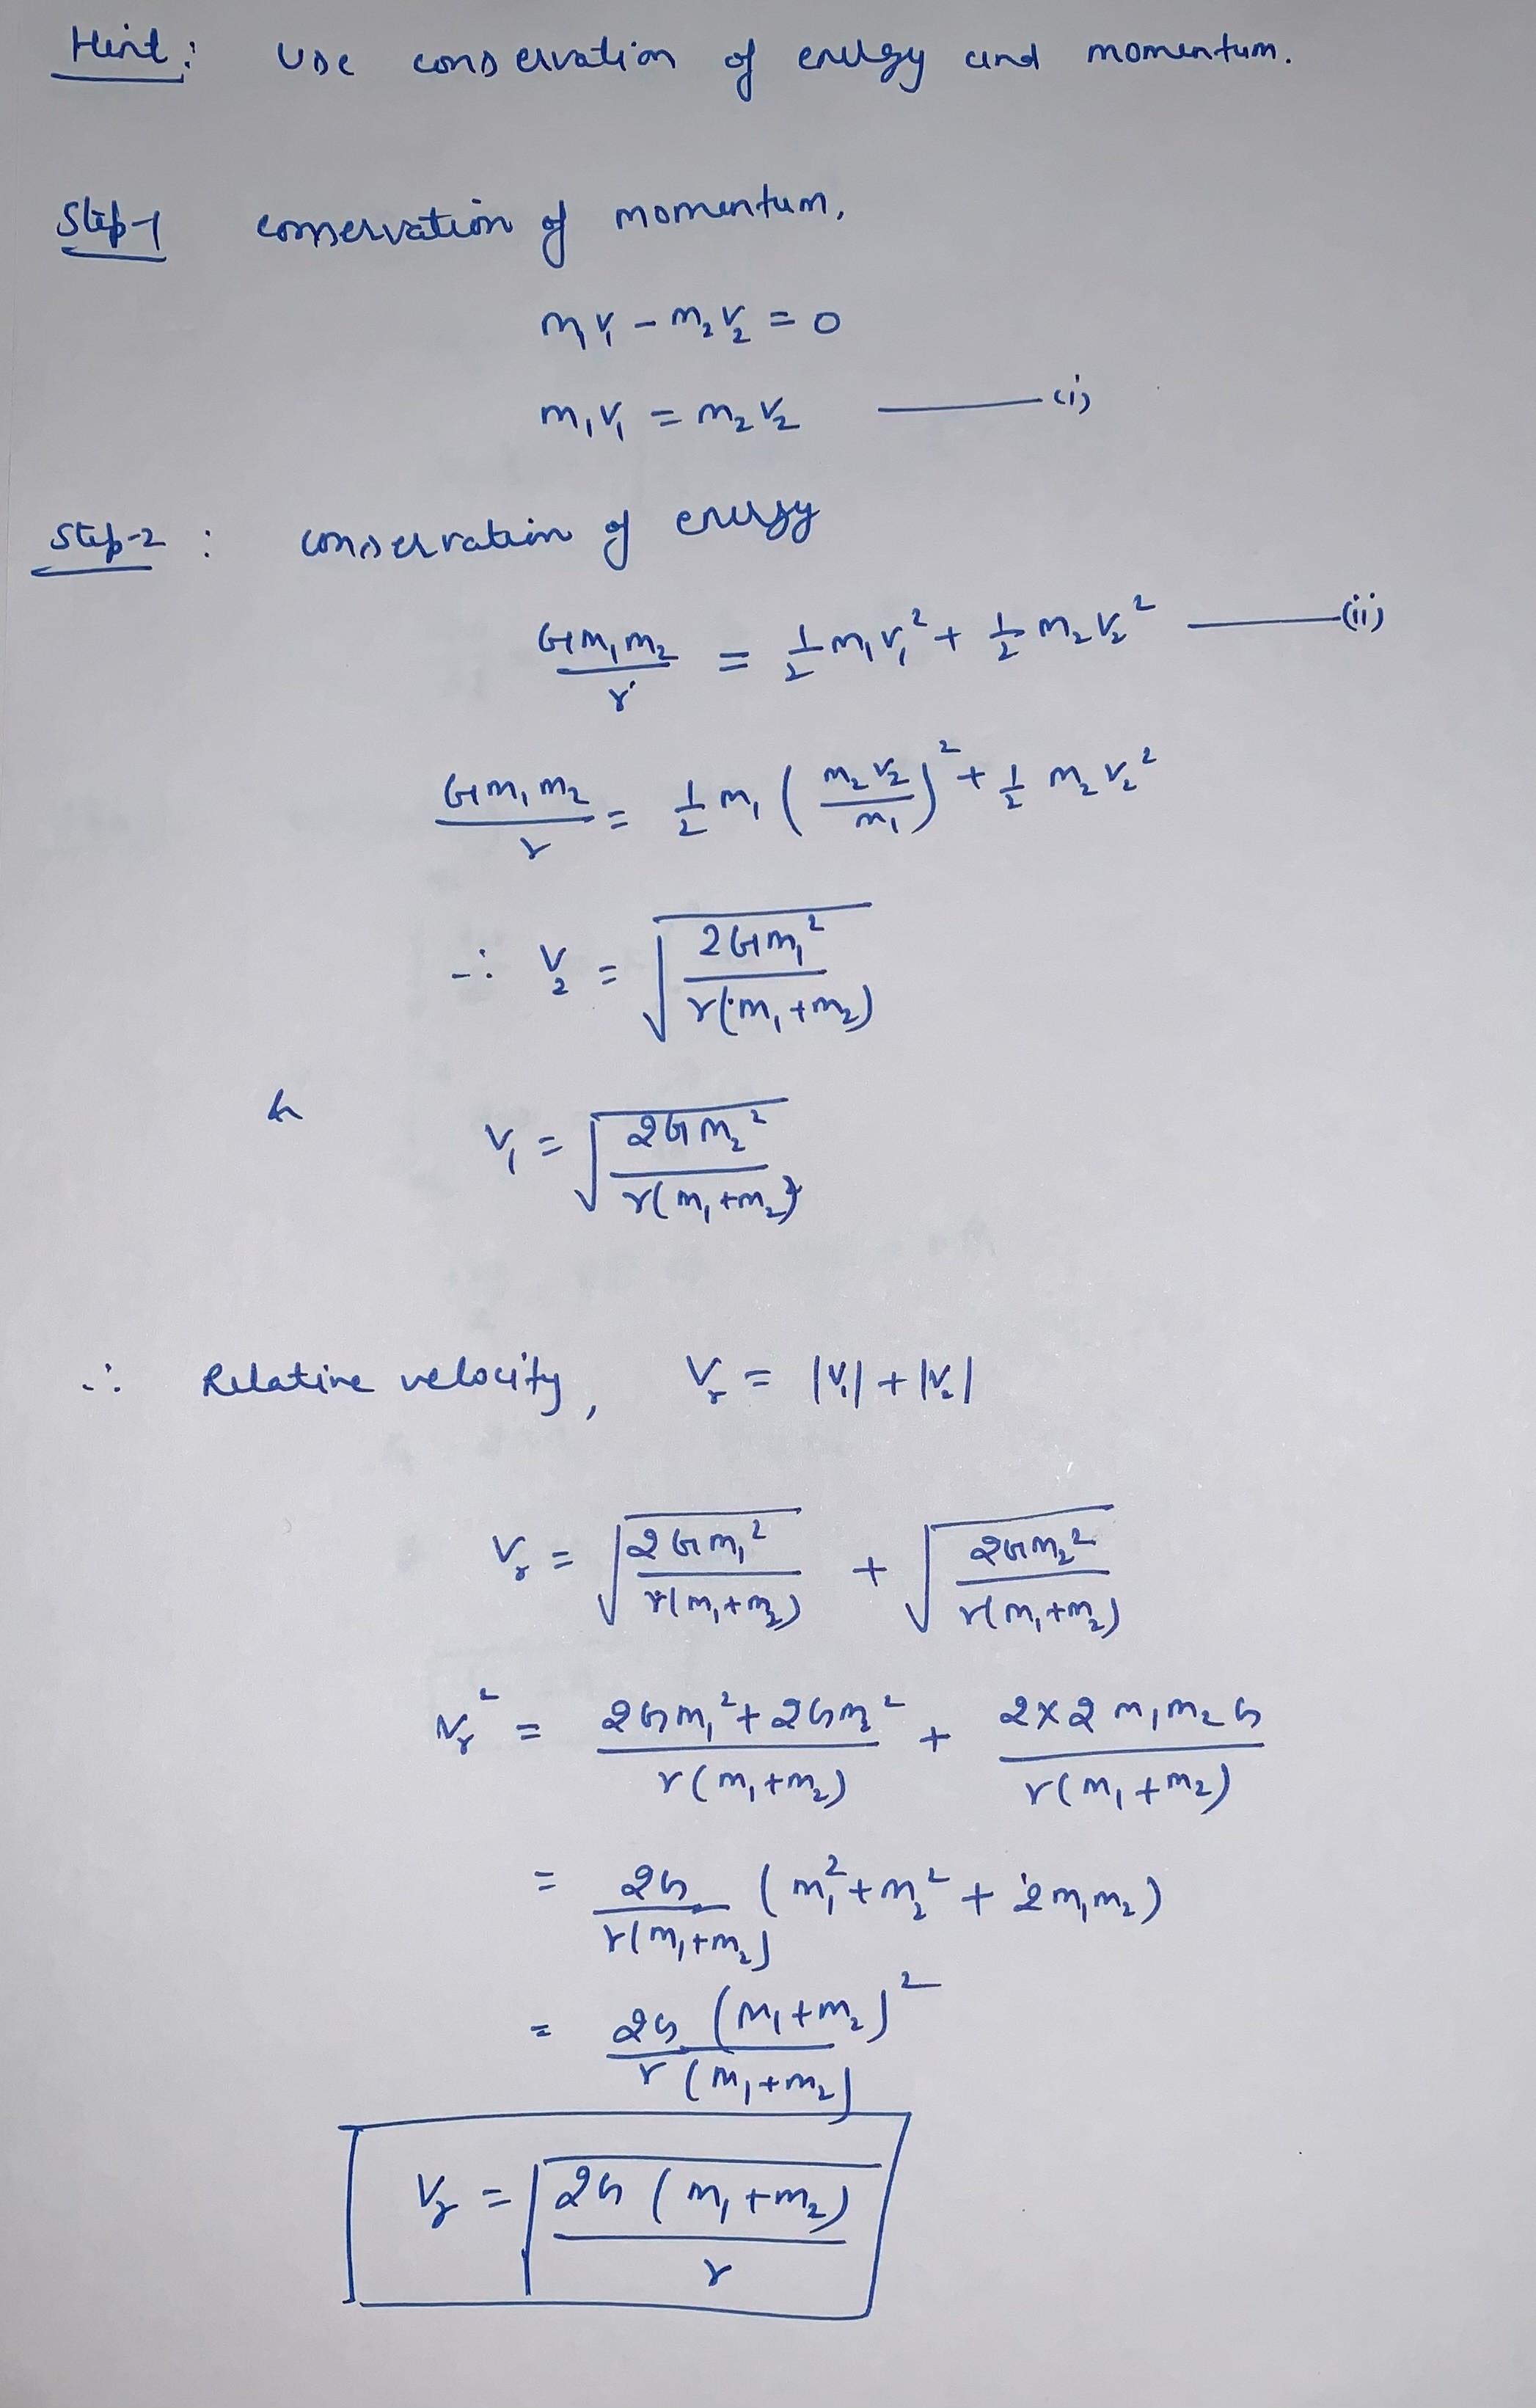 Hint: Use conservation of energy and momentum.
Step-1 conservation of momentum,
m₁v₁ - m₂v₂ = 0
m₁v₁ = m₂v₂ ——— (i)
Step-2 : conservation of energy
Gm₁m₂/r = 1/2 m₁v₁² + 1/2 m₂v₂² ——— (ii)
Gm₁m₂/r = 1/2 m₁ (m₂v₂/m₁)² + 1/2 m₂v₂²
∴ v₂ = √(2Gm₁²/r(m₁+m₂))
& v₁ = √(2Gm₂²/r(m₁+m₂))
∴ Relative velocity, Vᵣ = |v₁| + |v₂|
Vᵣ = √(2Gm₁²/r(m₁+m₂)) + √(2Gm₂²/r(m₁+m₂))
Vᵣ² = (2Gm₁² + 2Gm₂²)/r(m₁+m₂) + 2×2 m₁m₂G/r(m₁+m₂)
= 2G/r(m₁+m₂) (m₁² + m₂² + 2m₁m₂)
= 2G (m₁+m₂)²/r(m₁+m₂)
Vᵣ = √(2G(m₁+m₂)/r)